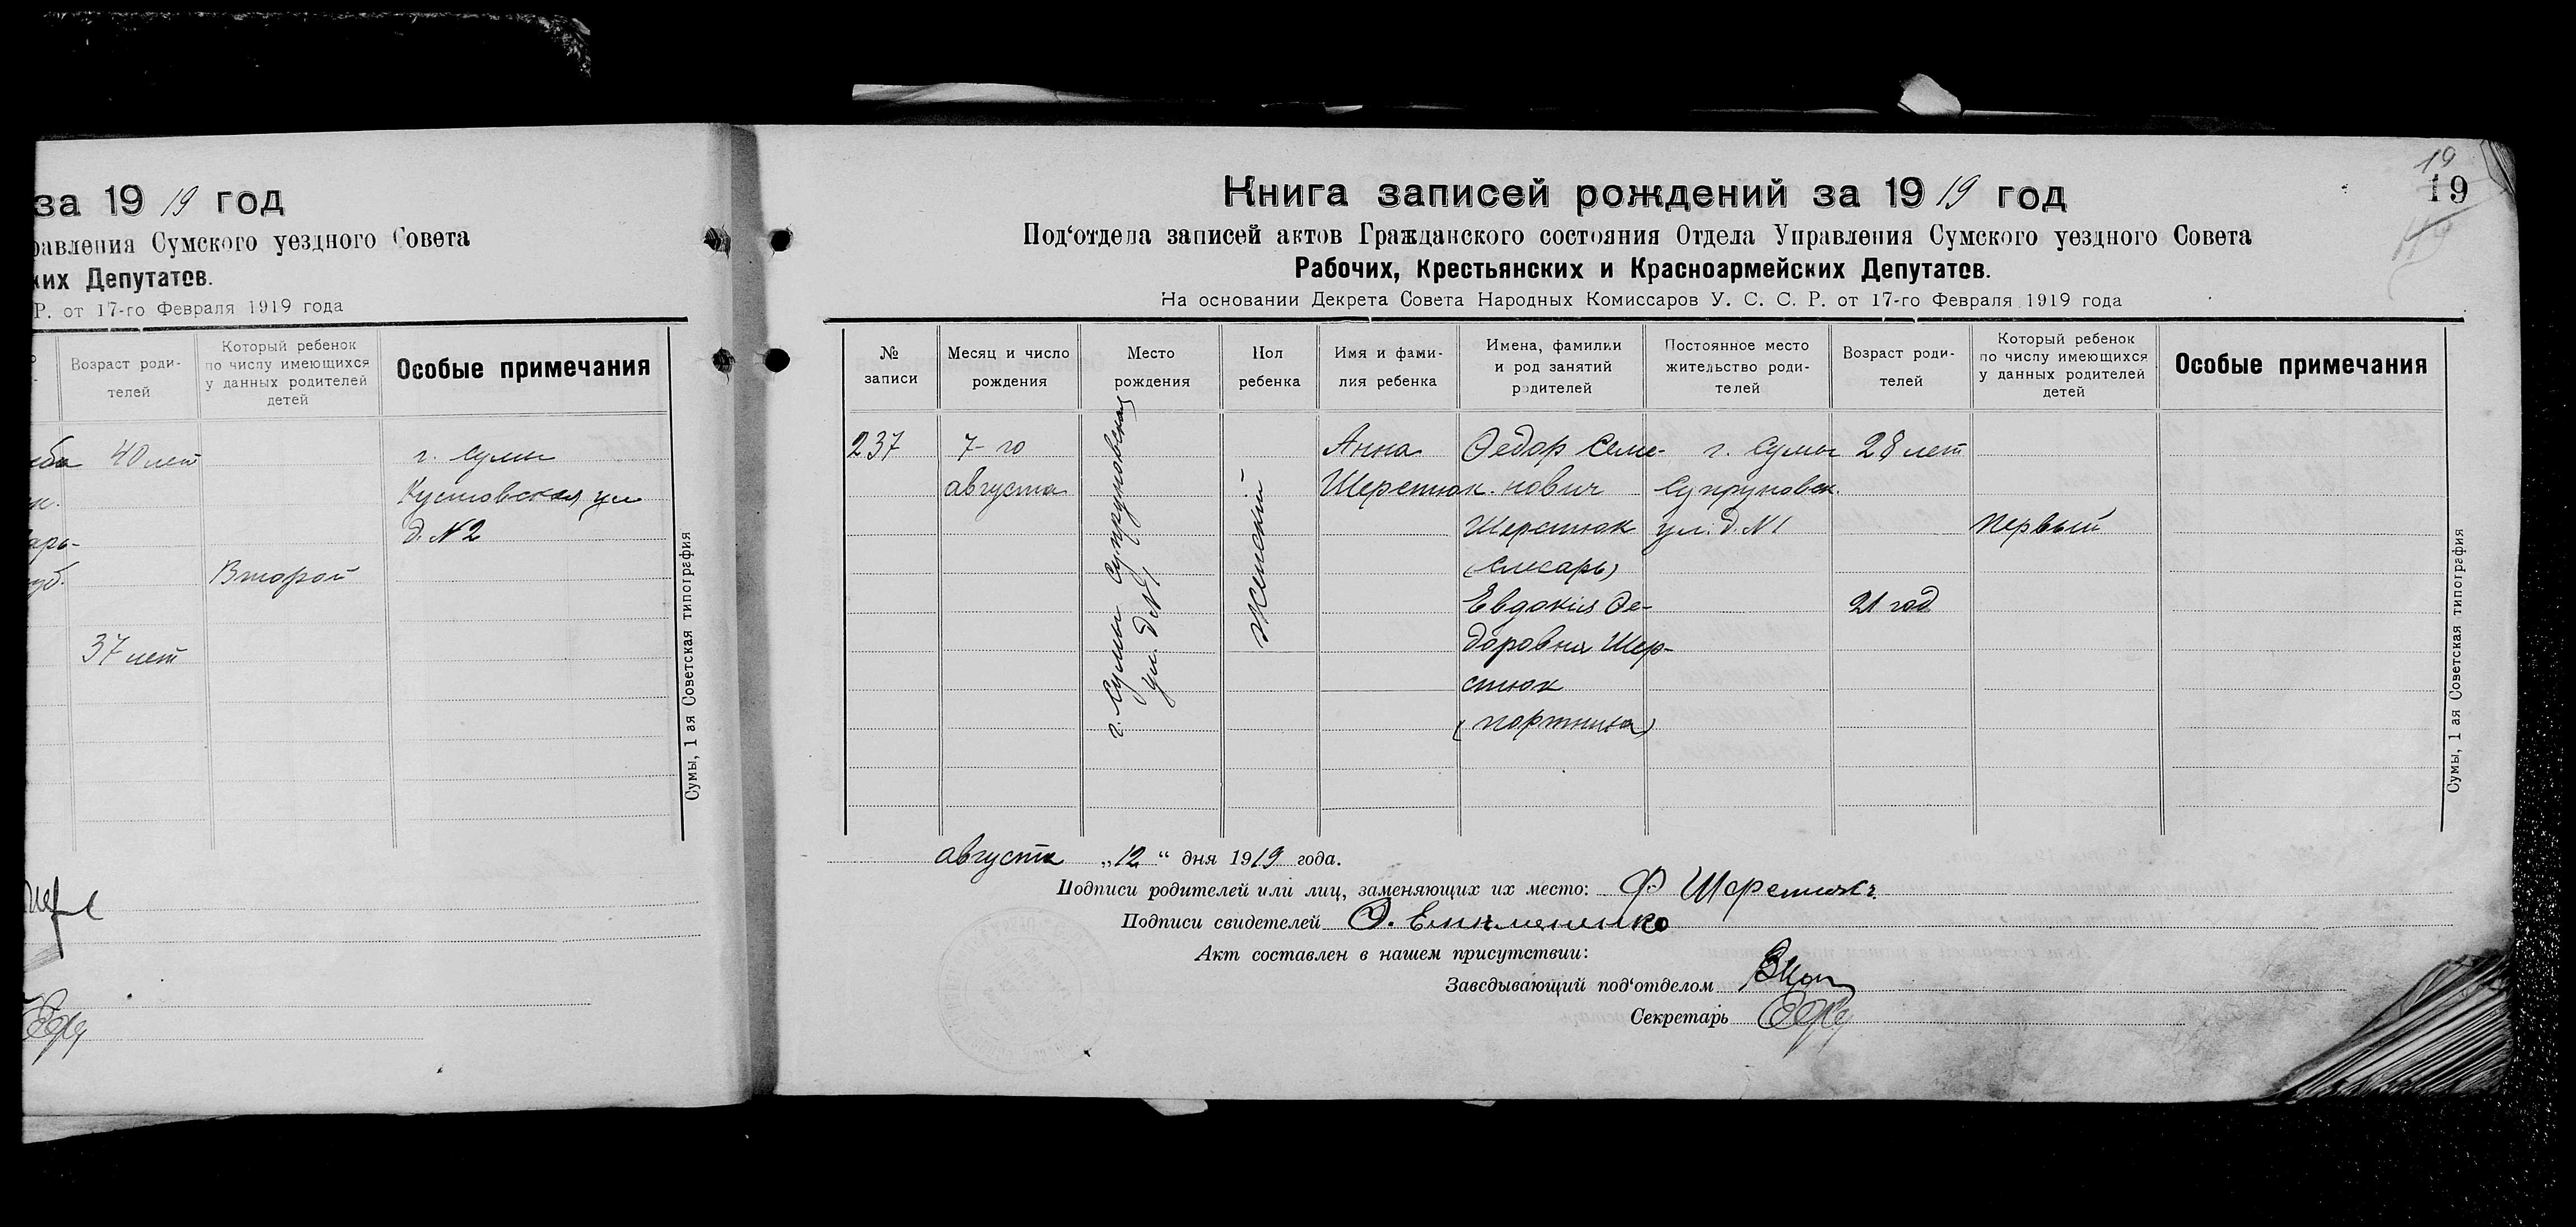 за 1919 год
равления Сумского уездного Совета
ких Депутатов.
Р. от 17-го Февраля 1919 года
Возраст роди-
телей
Который ребенок
по числу имеющихся
у данных родителей
детей
Особые примечания
40 лет
г. Сумы
Кустовская ул
д. №2
Второй
37 лет
Сумы, 1 ая Советская типография
19
19
Книга записей рождений за 1919 год
Под‘отдела записей актов Гражданского состояния Отдела Управления Сумского уездного Совета
Рабочих, Крестьянских и Красноармейских Депутатов.
На основании Декрета Совета Народных Комиссаров У. С. С. Р. от 17-го Февраля 1919 года
№
записи
Месяц и число
рождения
Место
рождения
Пол
ребенка
Имя и фами-
лия ребенка
Имена, фамилии
и род занятий
родителей
Постоянное место
жительство роди-
телей
Возраст роди-
телей
Который ребенок
по числу имеющихся
у данных родителей
детей
Особые примечания
237
7-го
августа
г. Сумы Супруновская
ул. д. №1
Женский
Анна
Шерстюк.
Федор Семе-
нович
Шерстюк
(слесарь)
Евдокия Фе-
доровна Шер-
стюк
(портниха)
г. Сумы
Супруновск.
ул. д. №1
28 лет
21 год
Первый
Сумы, 1 ая Советская типография
августа „12“ дня 1919 года.
Подписи родителей или лиц, заменяющих их место: Ф Шерстюк
Подписи свидетелей
Акт составлен в нашем присутствии:
Заведывающий под‘отделом
Секретарь